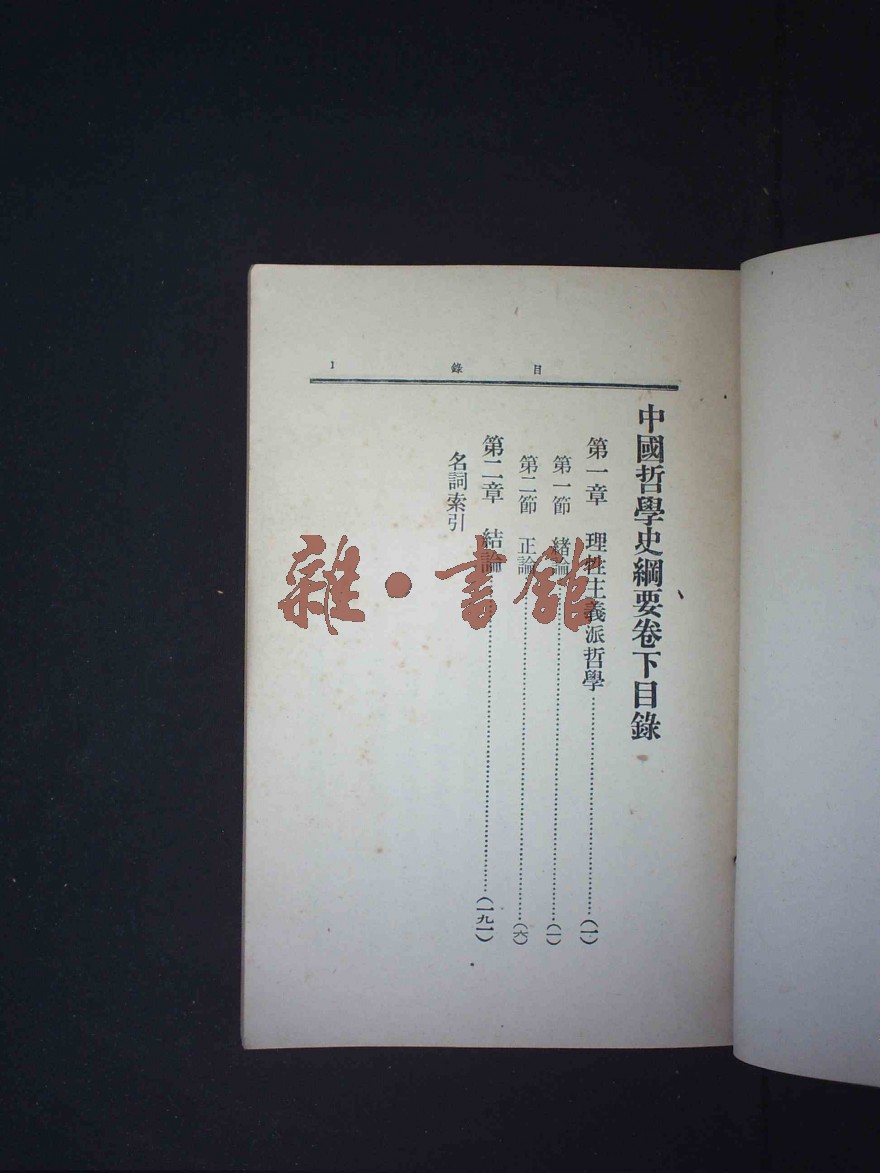 目錄 1
中國哲學史綱要卷下目錄
第一章 理性主義派哲學……(一)
第一節 緒論……(一)
第二節 正論……(六)
第二章 結論……(一九一)
名詞索引
雜·書館